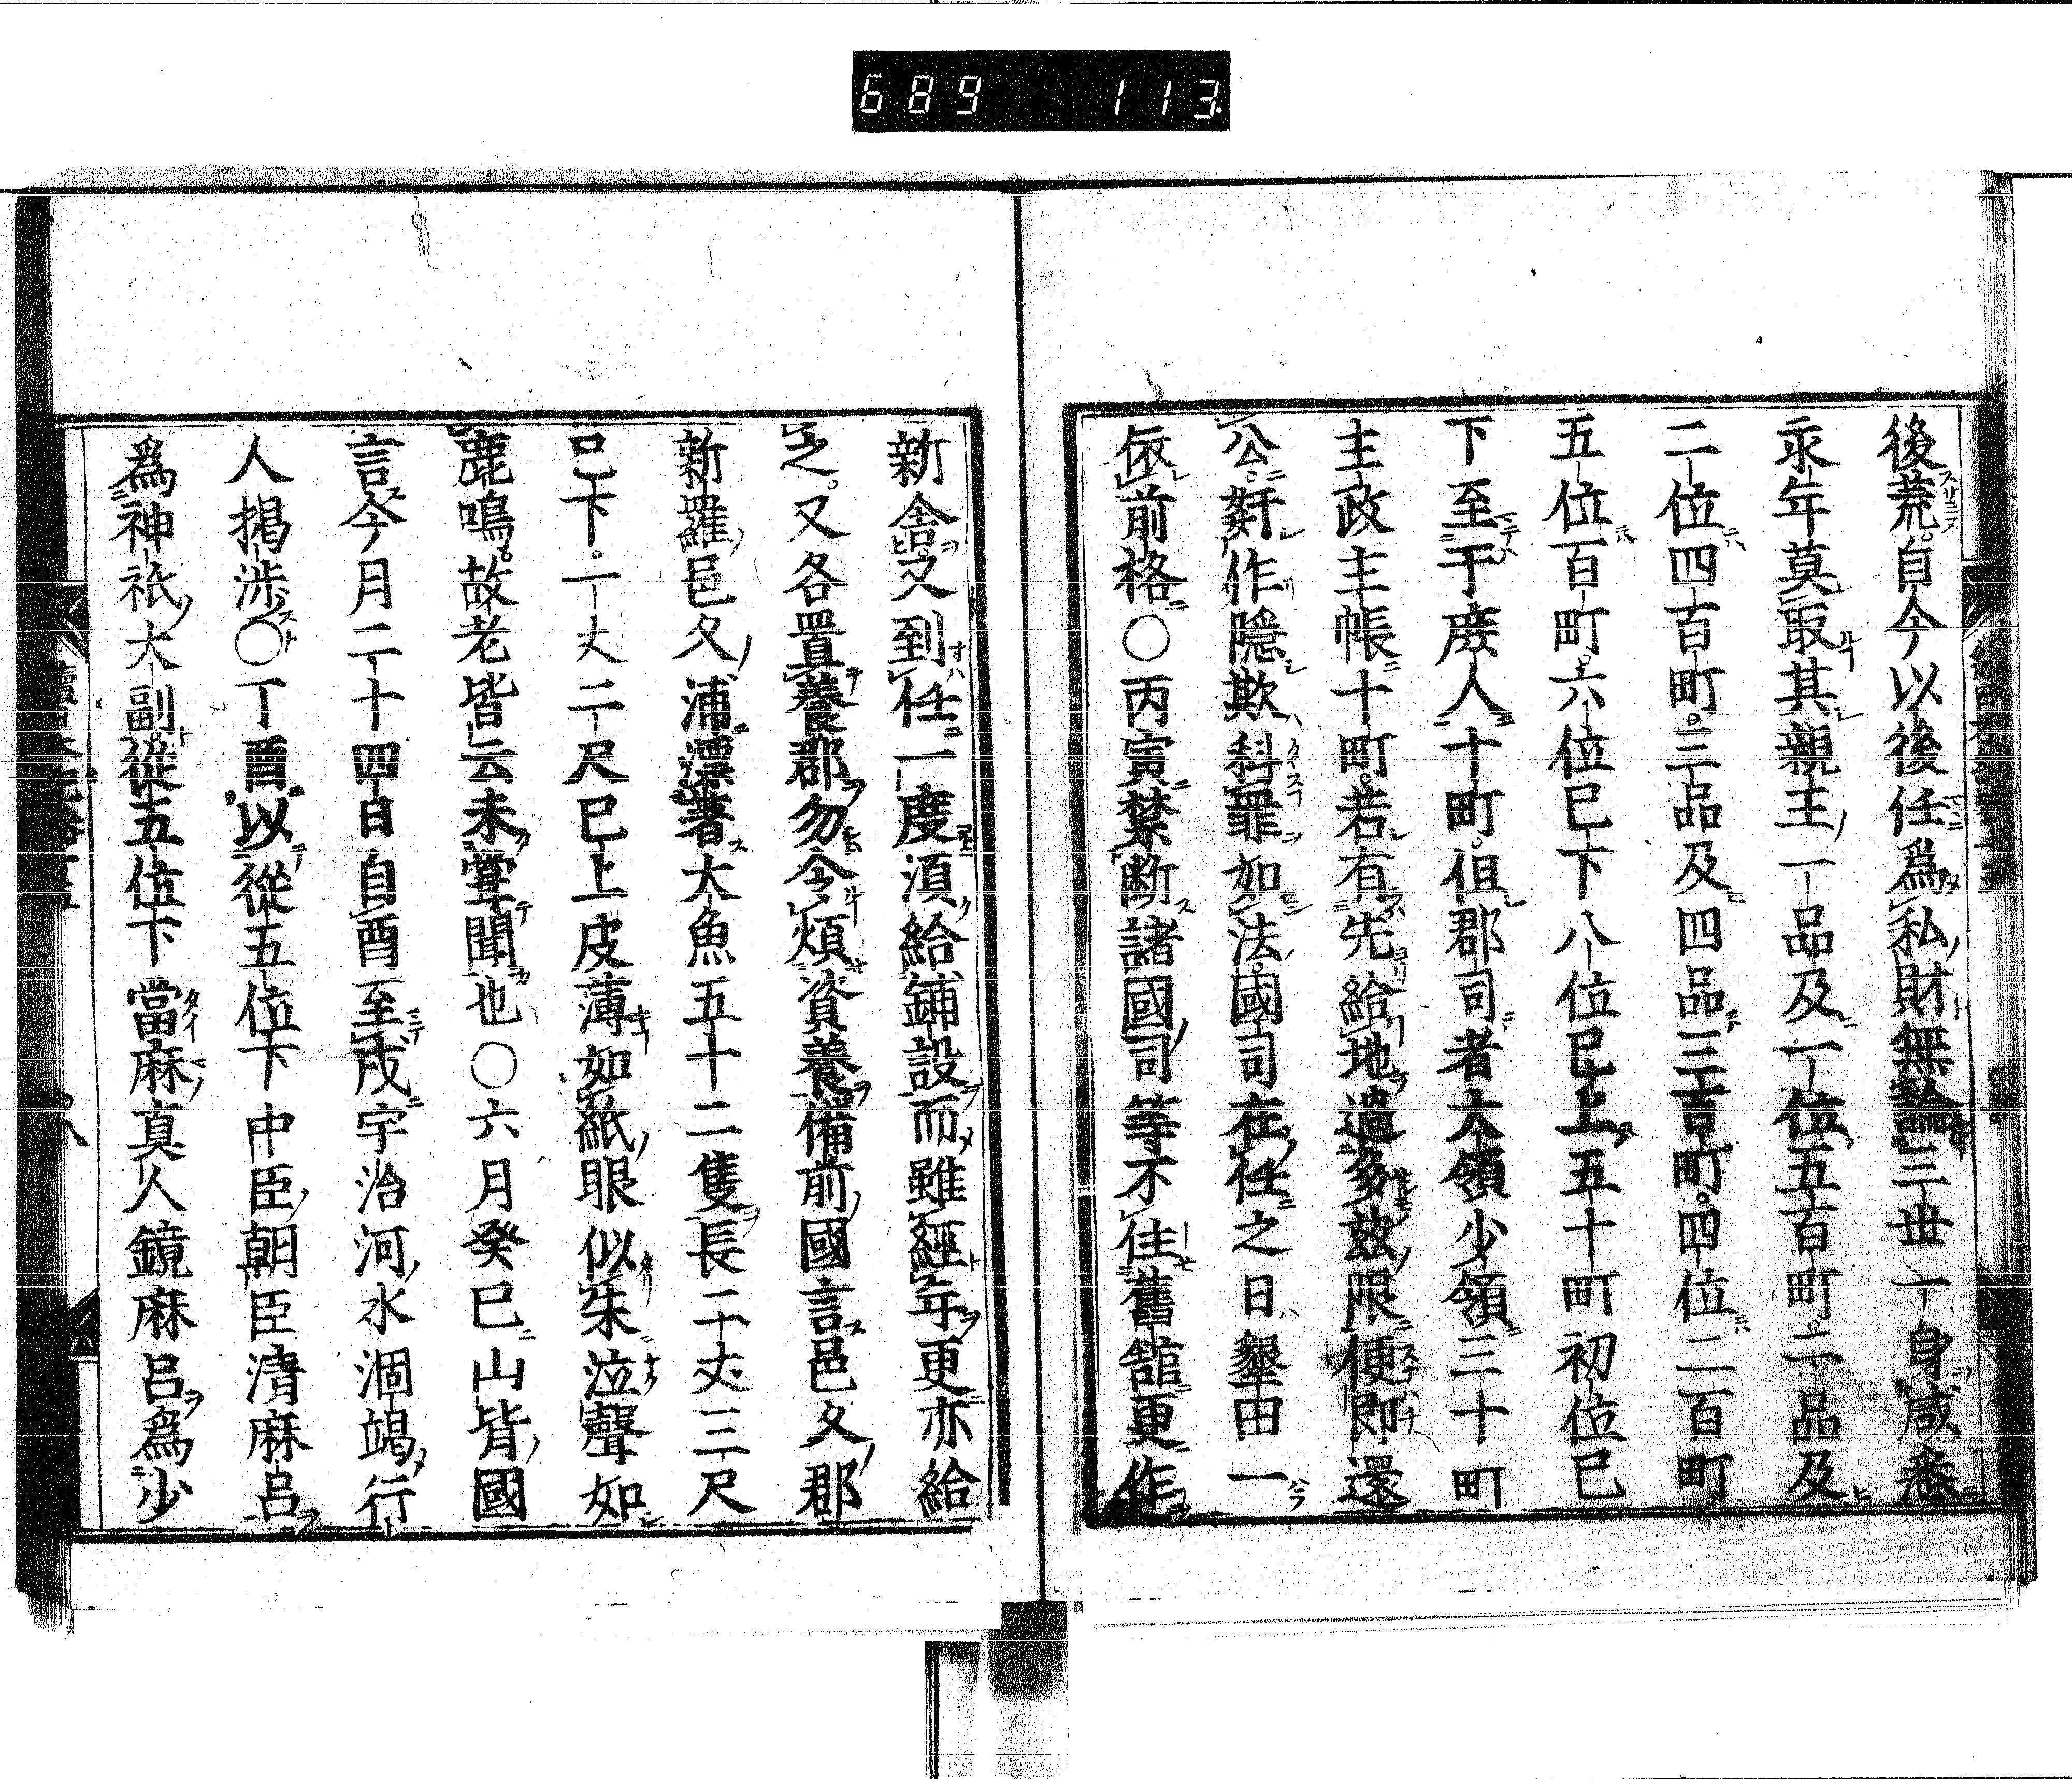 689 113
後荒。自今以後任爲私財無論三世一身咸悉
永年莫取其親王一品及一位五百町。二品及
二位四百町。三品及四品三百町。四位二百町
五位百町。六位已下八位已上五十町初位已
下至于庶人十町。但郡司者大領少領三十町
主政主帳十町。若有先給地過多玆限便即還
公。姧作隱欺科罪如法。國司在任之日墾田一
依前格〇丙寅禁断諸國司等不住舊舘更作
新舍。又到任一度湏給鋪設而雖經年更亦給
之。又各置養郡勿令煩資養備前國言邑久郡
新羅邑久浦漂著大魚五十二隻長二丈三尺
已下。一丈二尺已上皮薄如紙眼似朱泣聲如
鹿鳴。故老皆云未甞聞也〇六月癸巳山背國
言今月二十四日自酉至戌宇治河水涸竭行
人掲渉〇丁酉以從五位下中臣朝臣清麻呂
爲神祇大副。從五位下當麻真人鏡麻呂爲少